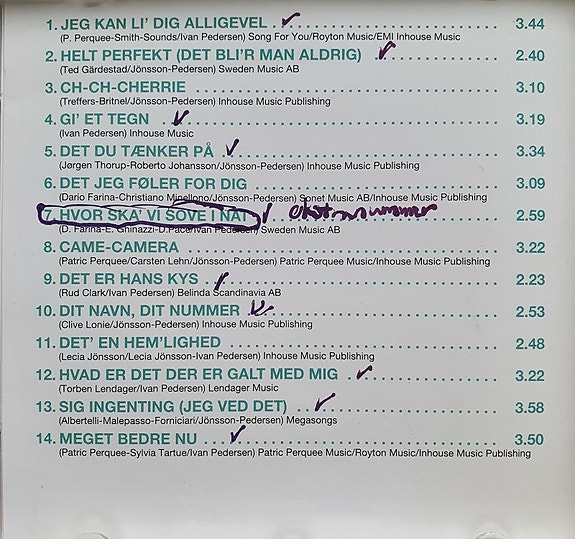 1. JEG KAN LI' DIG ALLIGEVEL 3.44
(P. Perquee-Smith-Sounds/Ivan Pedersen) Song For You/Royton Music/EMI Inhouse Music
2. HELT PERFEKT (DET BLI'R MAN ALDRIG) 2.40
(Ted Gärdestad/Jönsson-Pedersen) Sweden Music AB
3. CH-CH-CHERRIE 3.10
(Treffers-Britnel/Jönsson-Pedersen) Inhouse Music Publishing
4. GI' ET TEGN 3.19
(Ivan Pedersen) Inhouse Music
5. DET DU TÆNKER PÅ 3.34
(Jørgen Thorup-Roberto Johansson/Jönsson-Pedersen) Inhouse Music Publishing
6. DET JEG FØLER FOR DIG 3.09
(Dario Farina-Christiano Minellono/Jönsson-Pedersen) Sonet Music AB/Inhouse Music Publishing
7. HVOR SKA' VI SOVE I NAT ekstranummer 2.59
(D. Farina-E. Ghinazzi-D.Pace/Ivan Pedersen) Sweden Music AB
8. CAME-CAMERA 3.22
(Patric Perquee/Carsten Lehn/Jönsson-Pedersen) Patric Perquee Music/Inhouse Music Publishing
9. DET ER HANS KYS 2.23
(Rud Clark/Ivan Pedersen) Belinda Scandinavia AB
10. DIT NAVN, DIT NUMMER 2.53
(Clive Lonie/Jönsson-Pedersen) Inhouse Music Publishing
11. DET' EN HEM'LIGHED 2.48
(Lecia Jönsson/Lecia Jönsson-Ivan Pedersen) Inhouse Music Publishing
12. HVAD ER DET DER ER GALT MED MIG 3.22
(Torben Lendager/Ivan Pedersen) Lendager Music
13. SIG INGENTING (JEG VED DET) 3.58
(Albertelli-Malepasso-Forniciari/Jönsson-Pedersen) Megasongs
14. MEGET BEDRE NU 3.50
(Patric Perquee-Sylvia Tartue/Ivan Pedersen) Patric Perquee Music/Royton Music/Inhouse Music Publishing